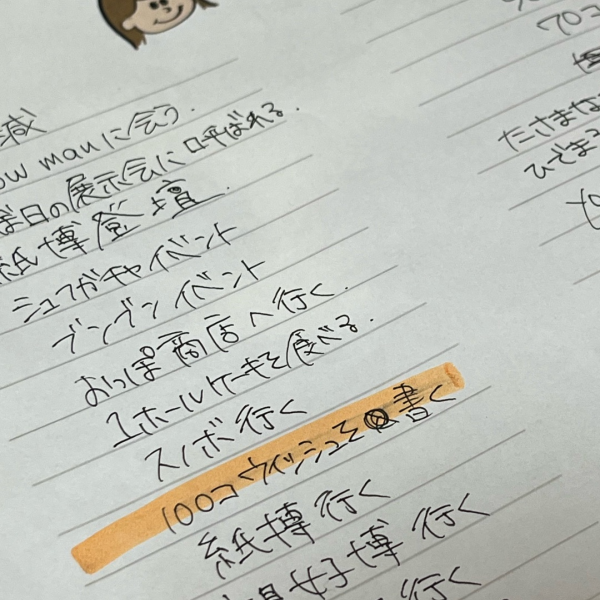 減
ow manに会う.
ぼ日の展示会に呼ばれる.
紙博登壇.
シュフガチャイベント
ブングンイベント
おっぽ商店へ行く.
1ホールケーキを食べる.
スノボ行く
100コウィッシュを書く
紙博行く
文具女子博行く
行く
70コ
たさまな
ひでまっ